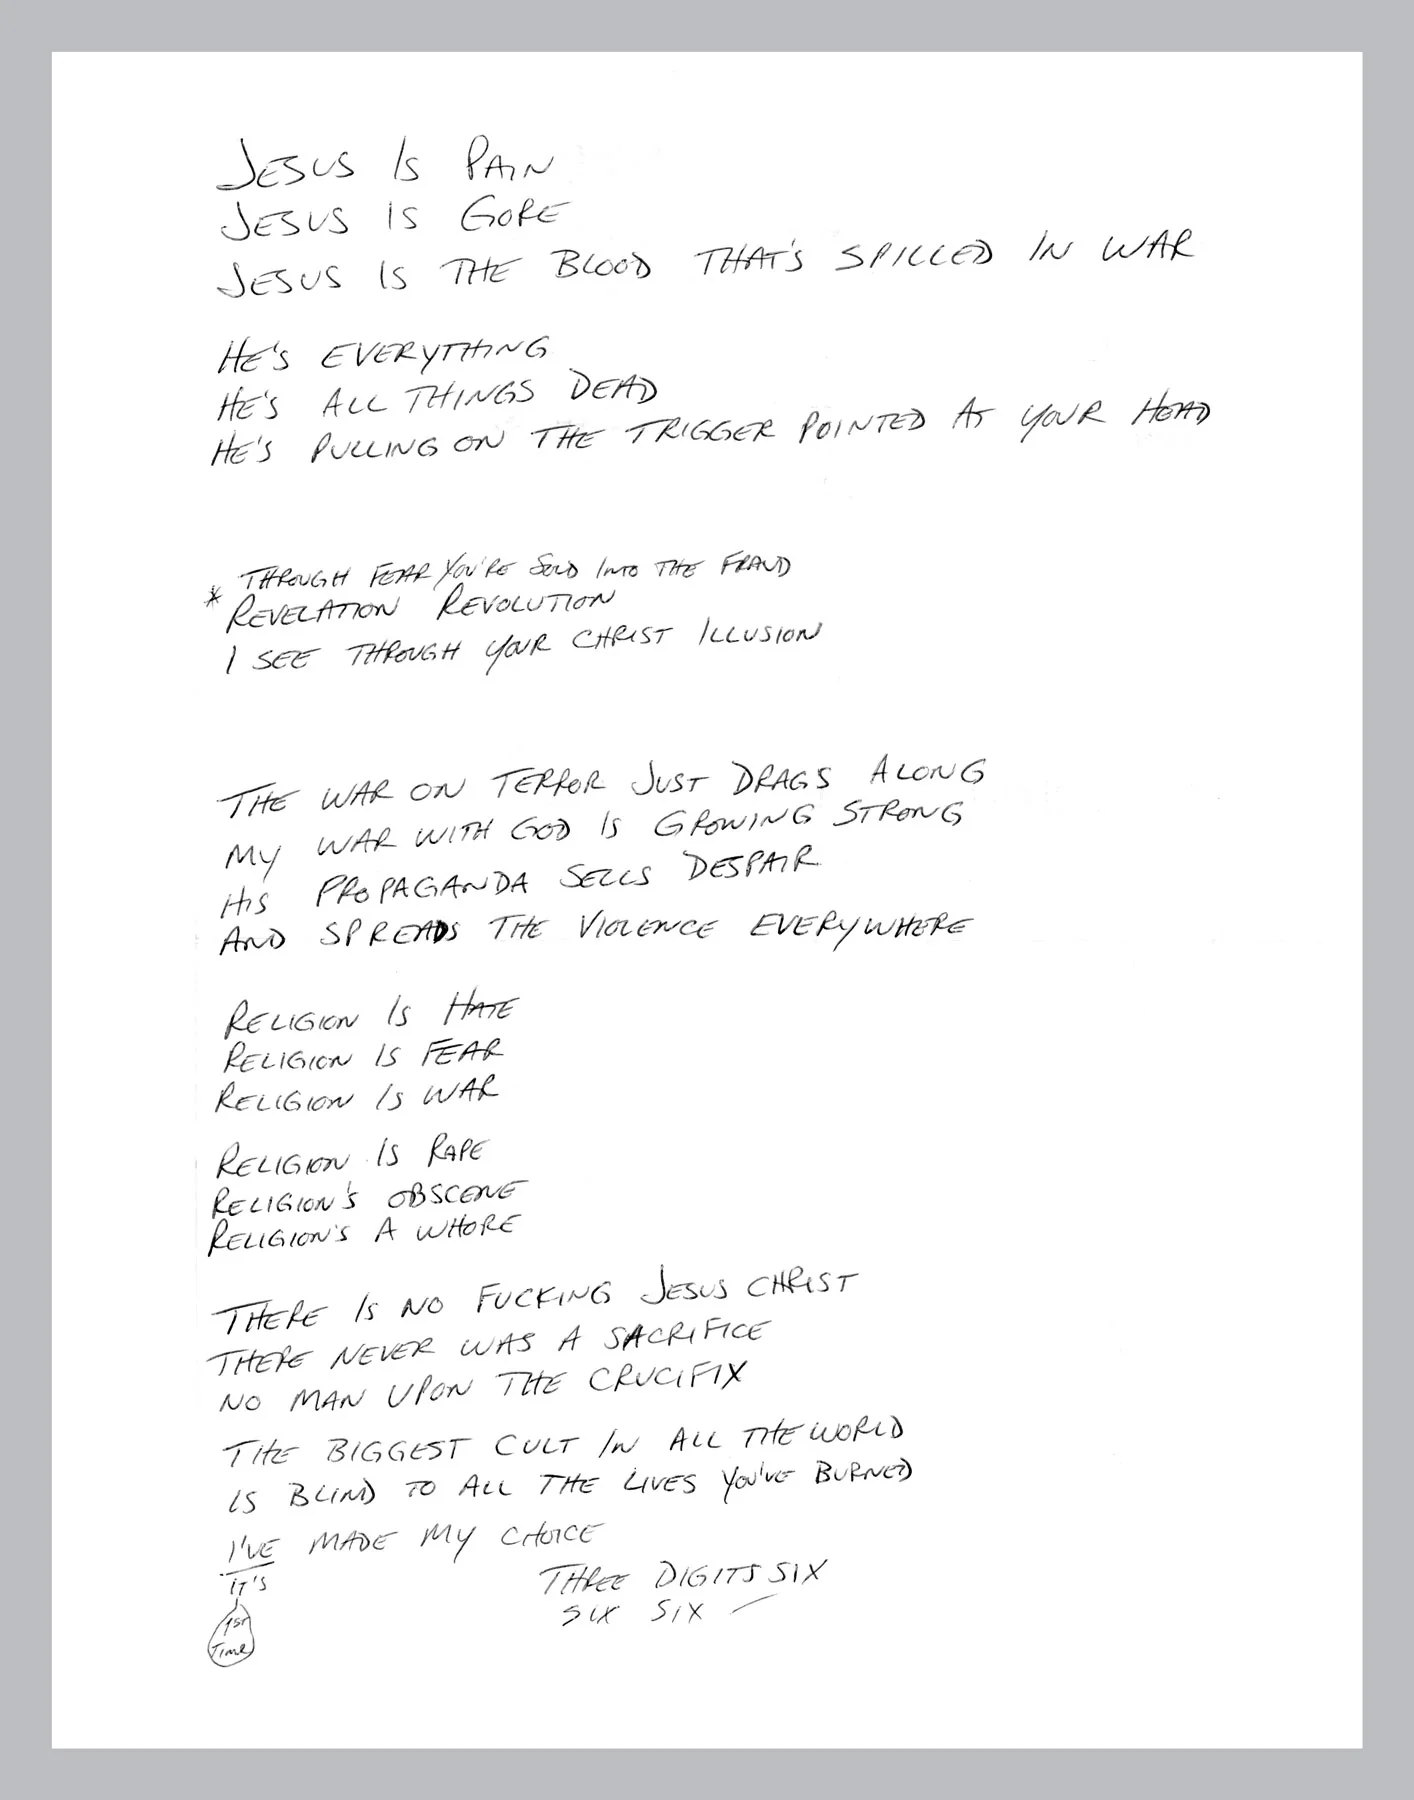 JESUS IS PAIN
JESUS IS GORE
JESUS IS THE BLOOD THAT'S SPILLED IN WAR
HE'S EVERYTHING
HE'S ALL THINGS DEAD
HE'S PULLING ON THE TRIGGER POINTED AT YOUR HEAD
THROUGH FEAR YOU'RE SOLD INTO THE FRAUD
* REVELATION REVOLUTION
I SEE THROUGH YOUR CHRIST ILLUSION
THE WAR ON TERROR JUST DRAGS ALONG
MY WAR WITH GOD IS GROWING STRONG
HIS PROPAGANDA SELLS DESPAIR
AND SPREADS THE VIOLENCE EVERYWHERE
RELIGION IS HATE
RELIGION IS FEAR
RELIGION IS WAR
RELIGION IS RAPE
RELIGION'S OBSCENE
RELIGION'S A WHORE
THERE IS NO FUCKING JESUS CHRIST
THERE NEVER WAS A SACRIFICE
NO MAN UPON THE CRUCIFIX
THE BIGGEST CULT IN ALL THE WORLD
IS BLIND TO ALL THE LIVES YOU'VE BURNED
I'VE MADE MY CHOICE
IT'S THREE DIGITS SIX
1ST SIX SIX —
TIME